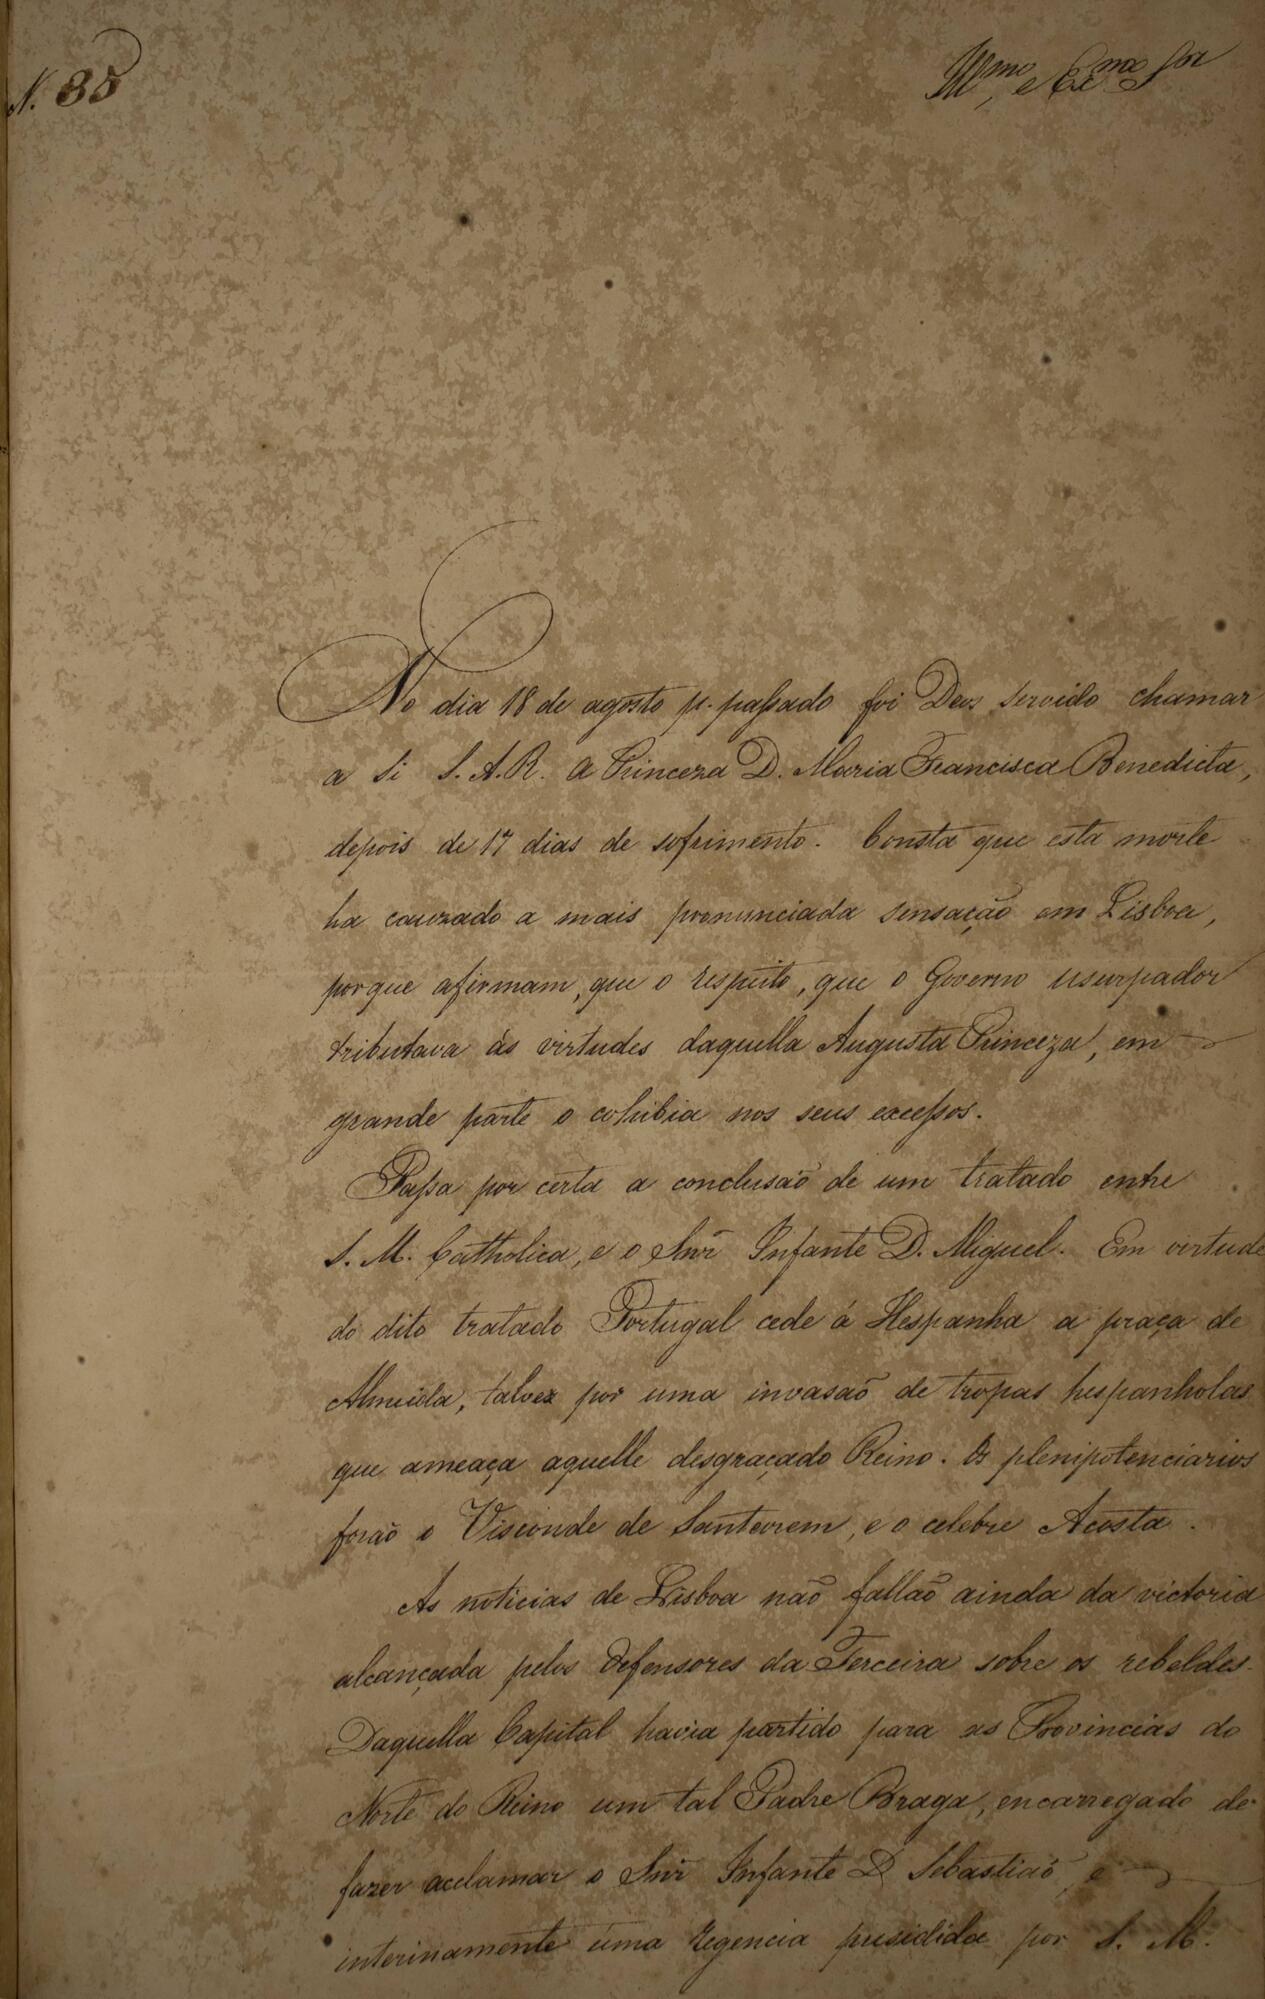 N. 38
Illmo, e Exmo Snr
No dia 18 de agosto p. passado foi Deos servido chamar
a Si S. A. R. A Princeza D. Maria Francisca Benedicta,
depois de 17 dias de sofrimento. Consta que esta morte
ha cauzado a mais pronunciada sensação em Lisboa,
porque afirmam, que o respeito, que o Governo usurpador
tributava ás virtudes daquella Augusta Princeza, em
grande parte o cohibia nos seus excessos.
Passa por certa a conclusaõ de um tratado entre
S. M. Catholica, e o Snr̃ Infante D. Miguel. Em virtude
do dito tratado Portugal cede á Hespanha a praça de
Almeida, talvez por uma invasaõ de tropas hespanholas
que ameaça aquelle desgraçado Reino. Os plenipotenciarios
foraõ o Visconde de Santarem, e o celebre Acosta.
As noticias de Lisboa naõ fallaõ ainda da victoria
alcançada pelos defensores da Terceira sobre os rebeldes.
Daquella Capital havia partido para as Provincias do
Norte do Reino um tal Padre Braga, encarregado de
fazer acclamar o Snr̃ Infante D Sebastiaõ, e
interinamente uma Regencia presidida por S. M.